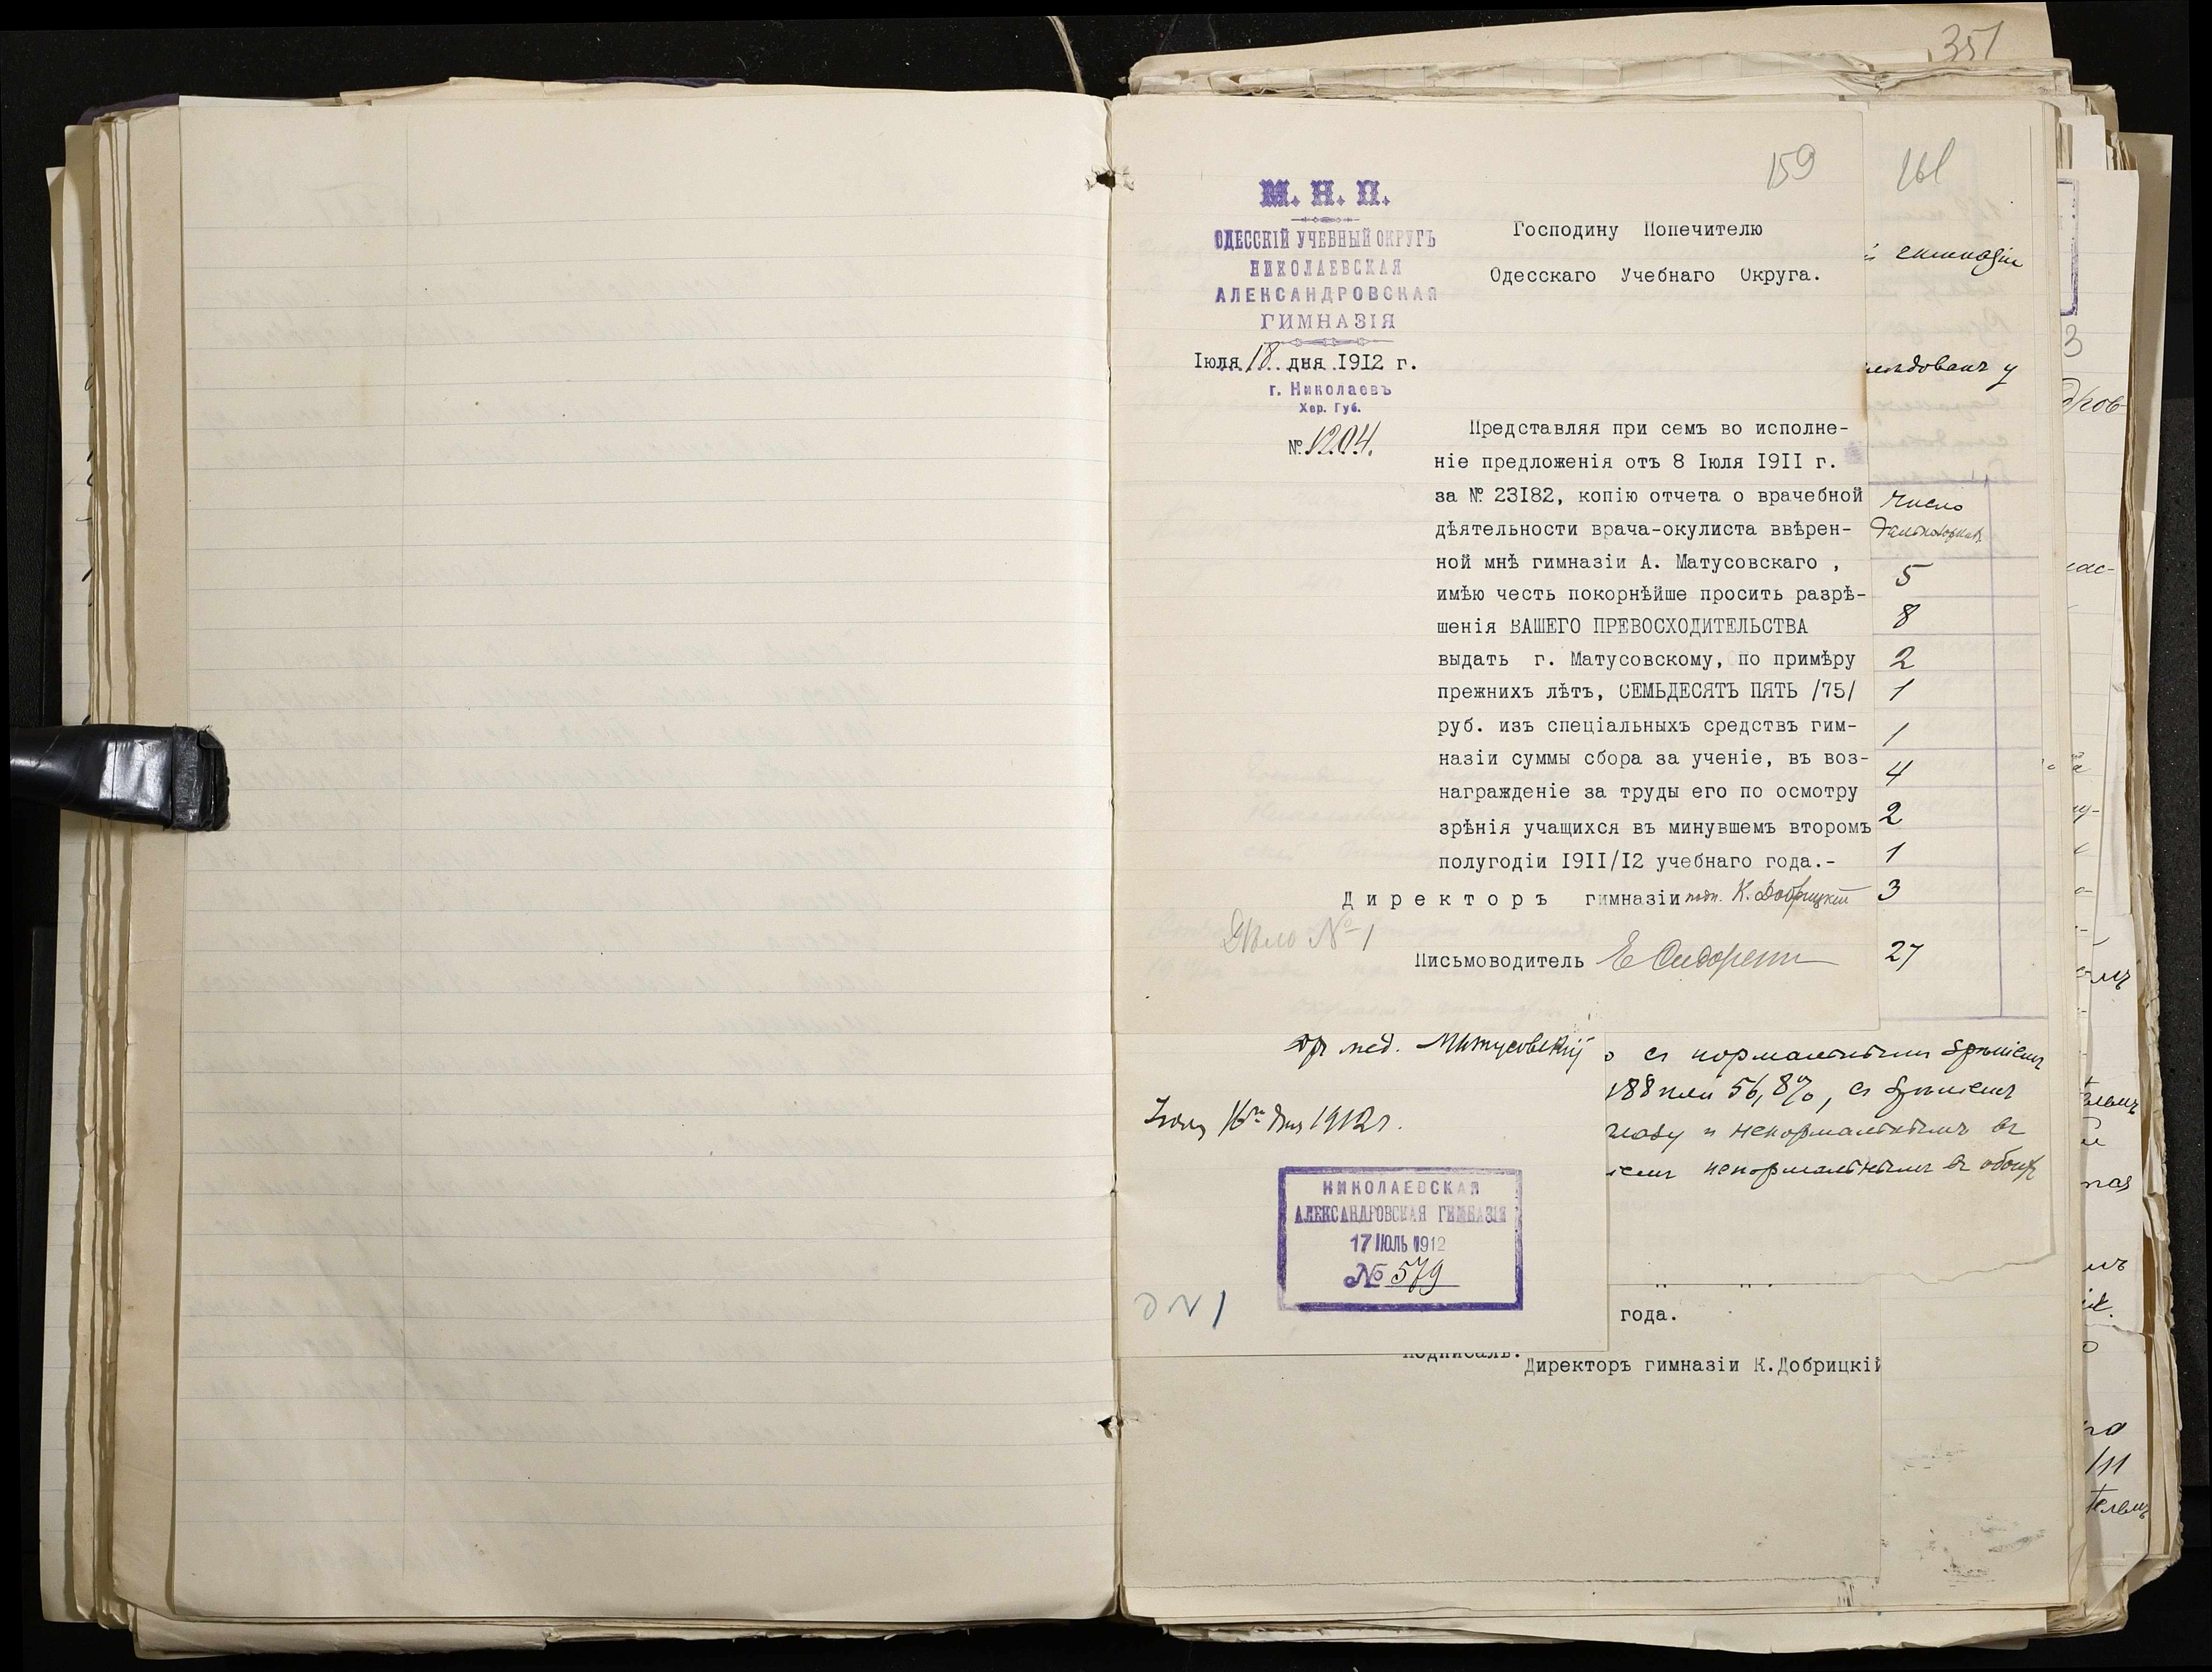 351
159
161
М. Н. П.
ОДЕССКІЙ УЧЕБНЫЙ ОКРУГЪ
НИКОЛАЕВСКАЯ
АЛЕКСАНДРОВСКАЯ
ГИМНАЗІЯ
Іюля 18 дня 1912 г.
г. Николаевъ
Хер. Губ.
№ 1204.
Господину Попечителю
Одесскаго Учебнаго Округа.
Представляя при семъ во исполне-
ніе предложенія отъ 8 Іюля 1911 г.
за № 23182, копію отчета о врачебной
дѣятельности врача-окулиста ввѣрен-
ной мнѣ гимназіи А. Матусовскаго ,
имѣю честь покорнѣйше просить разрѣ-
шенія ВАШЕГО ПРЕВОСХОДИТЕЛЬСТВА
выдать г. Матусовскому, по примѣру
прежнихъ лѣтъ, СЕМЬДЕСЯТЪ ПЯТЬ /75/
руб. изъ спеціальныхъ средствъ гим-
назіи суммы сбора за ученіе, въ воз-
награжденіе за труды его по осмотру
зрѣнія учащихся въ минувшемъ второмъ
полугодіи 1911/12 учебнаго года.-
Директоръ гимназіи подп. К. Добрицкій
Дѣло № 1
Письмоводитель Е Сидорен
Число
5
8
2
1
1
4
2
1
3
27
др мед. Матусовскій
Іюля 16го дня 1912 г.
съ нормальнымъ зрѣніемъ
188 или 56,8%, съ зрѣніемъ
глазу и ненормальнымъ въ
ненормальнымъ въ обоихъ
НИКОЛАЕВСКАЯ
АЛЕКСАНДРОВСКАЯ ГИМНАЗІЯ
17 ІЮЛЬ 1912
№ 579
Д N 1
года.
Подписалъ:
Директоръ гимназіи К.Добрицкій